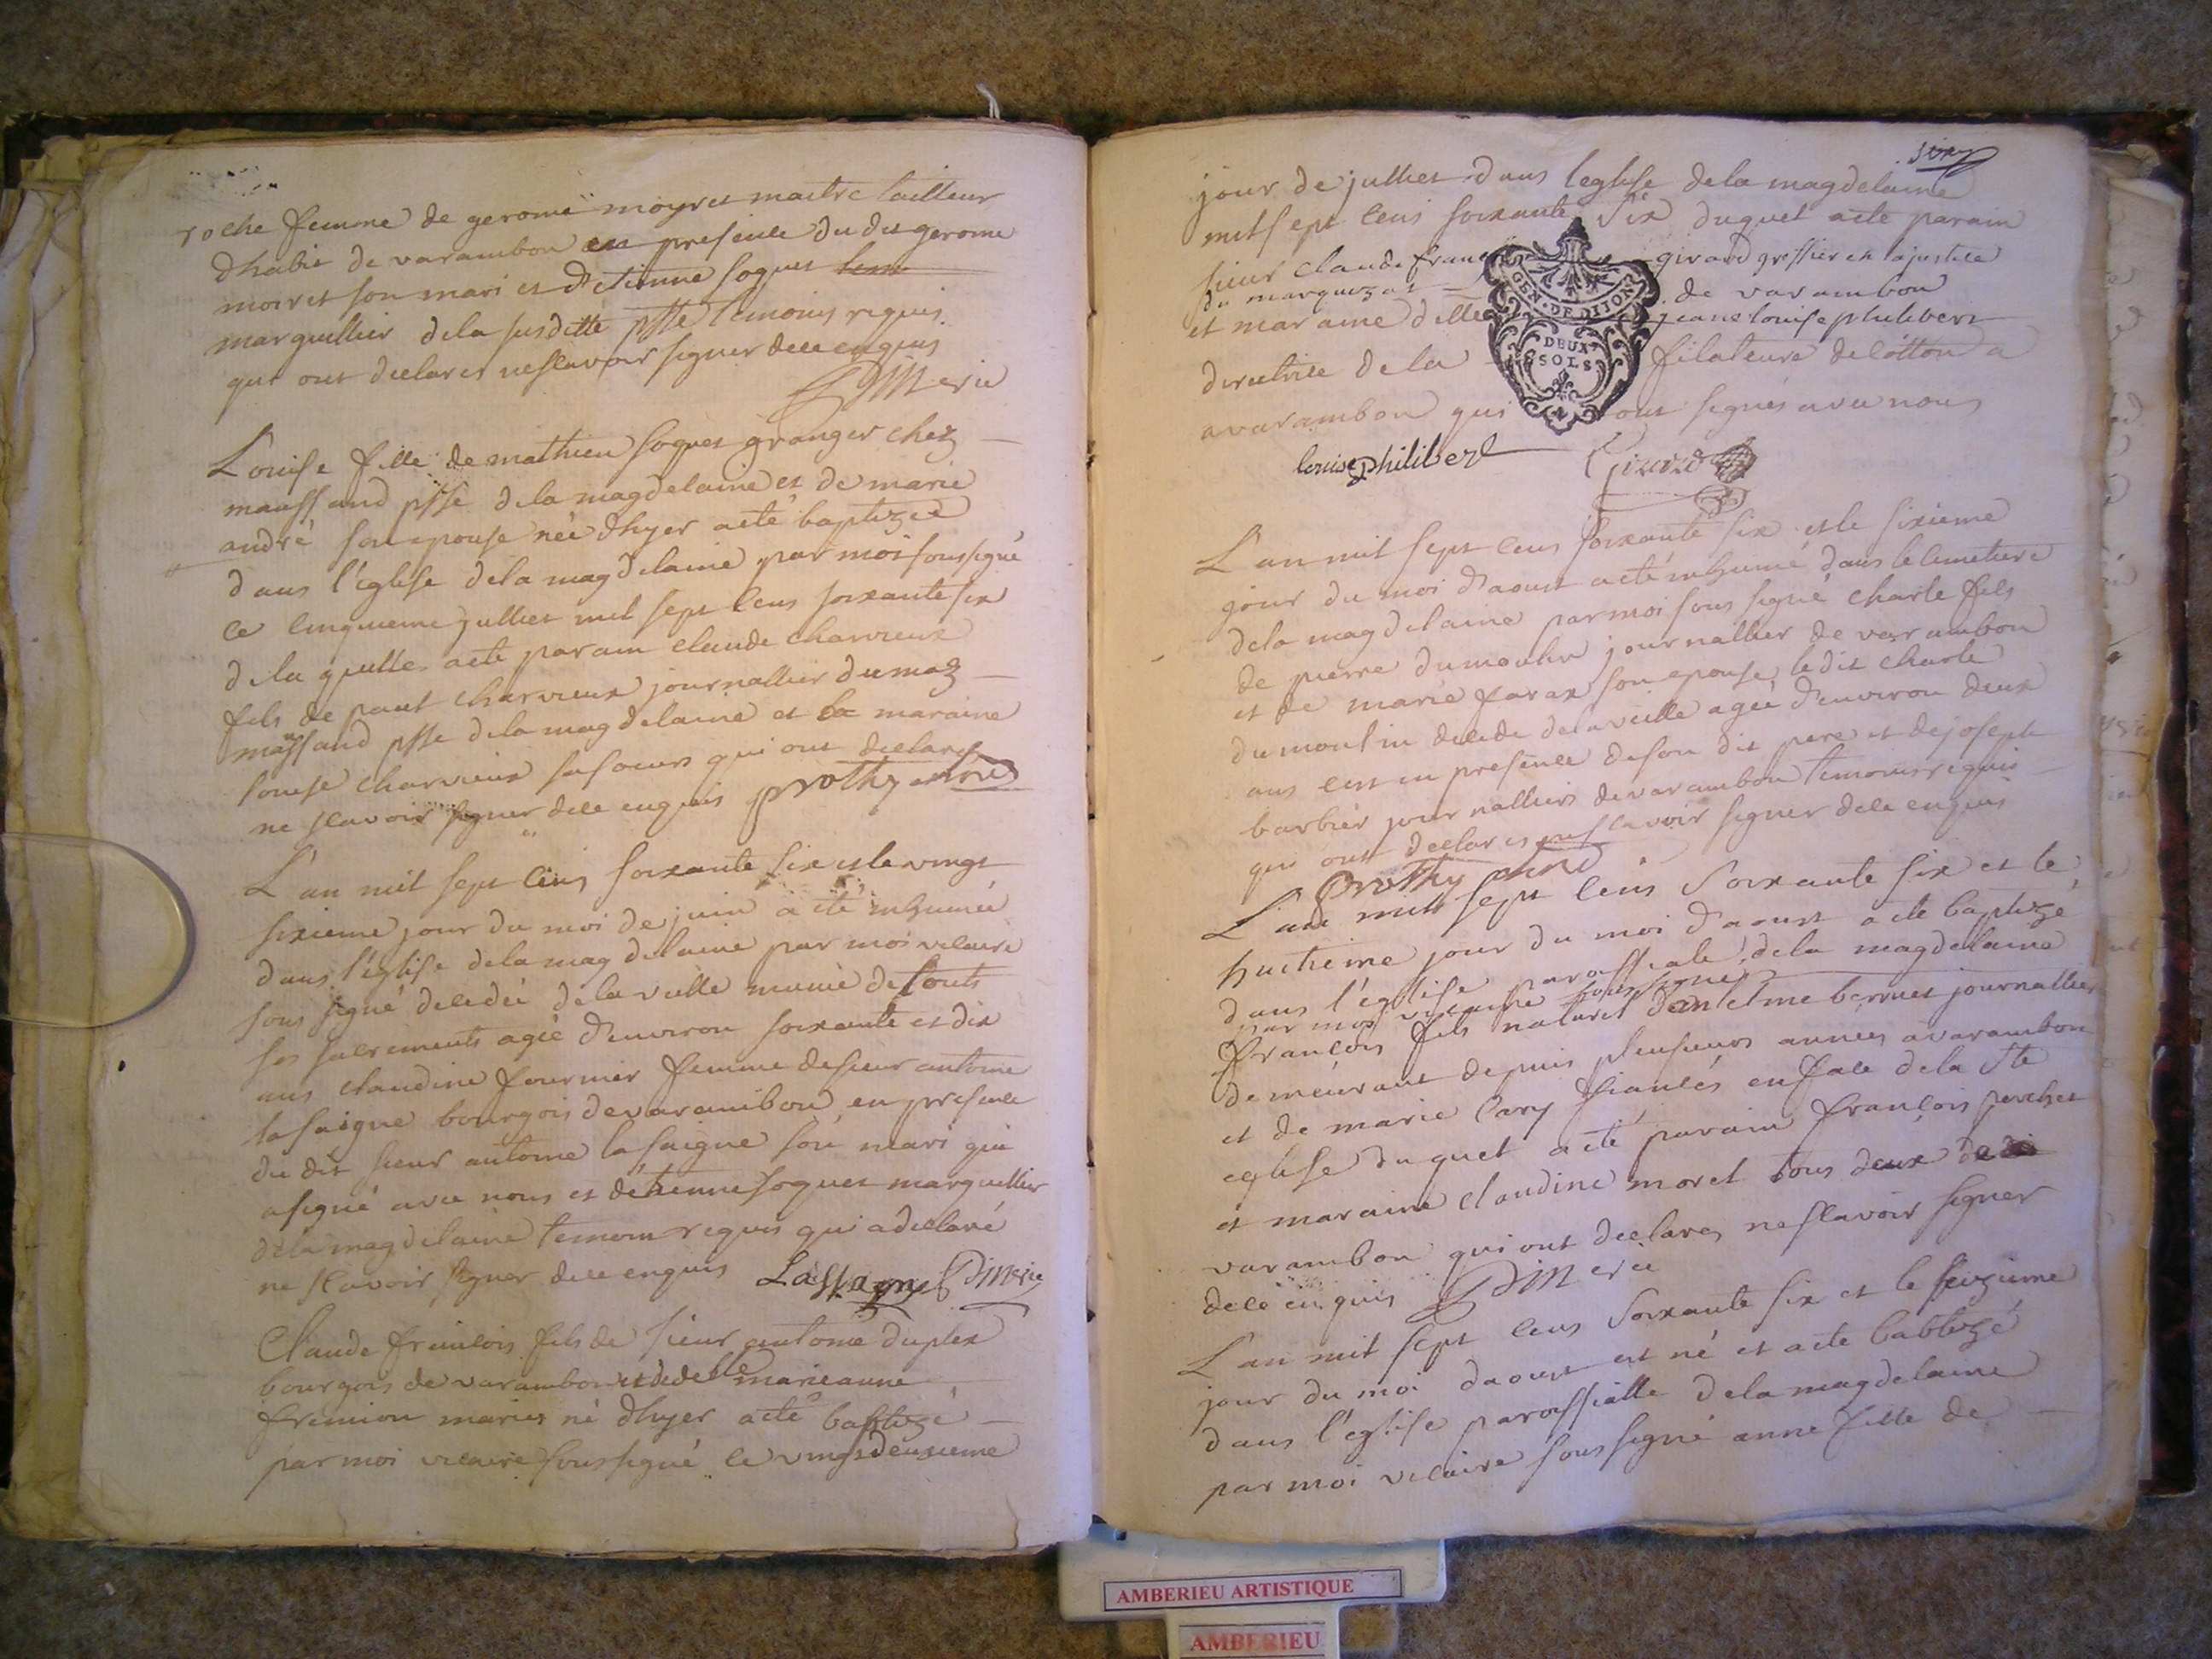 roche femme de gerome moyret maitre tailleur
dhabit de varambon en presence du dit gerome
moiret son mari et d'etienne soquet
marguillier de la susditte psse temoins requis
qui ont declares ne scavoir signer de ce enquis
Louise fille de mathieu soquet granger chez
maussand psse de la magdelaine et de marie
andré son epouse née d'hyer a eté baptizée
dans l'église de la magdelaine par moi soussigné
ce cinquieme jullies mil sept cens soixante six
de la quelle a eté parain claude charvieux
fils de paul charvieux journallier du maz
maussand psse de la magdelaine et la maraine
louise charvieux sa soeur qui ont declares
ne scavoir signer de ce enquis prothy
L'an mil sept cens soixante six et le vingt
sixieme jour du moi de juin a eté inhumée
dans l'église de la magdelaine par moi vicaire
sous signé decedée de la veille munie de touts
ses sacrements agée d'environ soixante et dix
ans claudine fournier femme de sieur antoine
lasaigne bourgois de varambon en presence
du dit sieur antoine lasaigne son mari qui
a signé avec nous et d'étienne soquet marguillier
de la magdelaine temoin requis qui a declaré
ne scavoir signer de ce enquis Lassagne
Claude francois fils de sieur antoine duplex
bourgois de varambon et de delle marieanne
fremion maries né d'hyer a eté baptizé
par moi vicaire soussigné le vingt deuxieme
jour de jullies dans leglise de la magdelaine
mil sept cens soixante six duquel a eté parain
sieur claude francois girard greffier en la justice
du marquizat de varambon
et maraine delle jeane louise philibert
directrice de la filateure de cotton a
a varambon qui ont signés avec nous
louise philibert Girard
GEN·DE DIJON
DEUX
SOLS
L'an mil sept cens soixante six et le sixieme
jour du moi d'aoust a eté inhumé dans le cimetiere
de la magdelaine par moi sous signé charle fils
de pierre dumoulin journallier de varambon
et de marie farax son epouse le dit charle
dumoulin decede de la veille agée d'environ deux
ans cest en presence de son dit pere et de joseph
barbier journalliers de varambon temoins requis
qui ont declares ne scavoir signer de ce enquis
prothy
L'an mil sept cens soixante six et le
huitieme jour du moi d'aoust a eté baptizé
dans l'église paroissiale de la magdelaine
par moi vicaire sous signé
francois fils naturel d'anthelme bernet journallier
demeurant depuis plusieurs années a varambon
et de marie cary fiancés en face de la ste
eglise duquel a eté parain françois perchet
et maraine claudine morel tous deux de
varambon qui ont declares ne scavoir signer
de ce enquis
L'an mil sept cens soixante six et le seizieme
jour du moi daoust est né et a eté babtizé
dans l'église paroissialle de la magdelaine
par moi vicaire sous signé anne fille de
AMBERIEU ARTISTIQUE
AMBERIEU